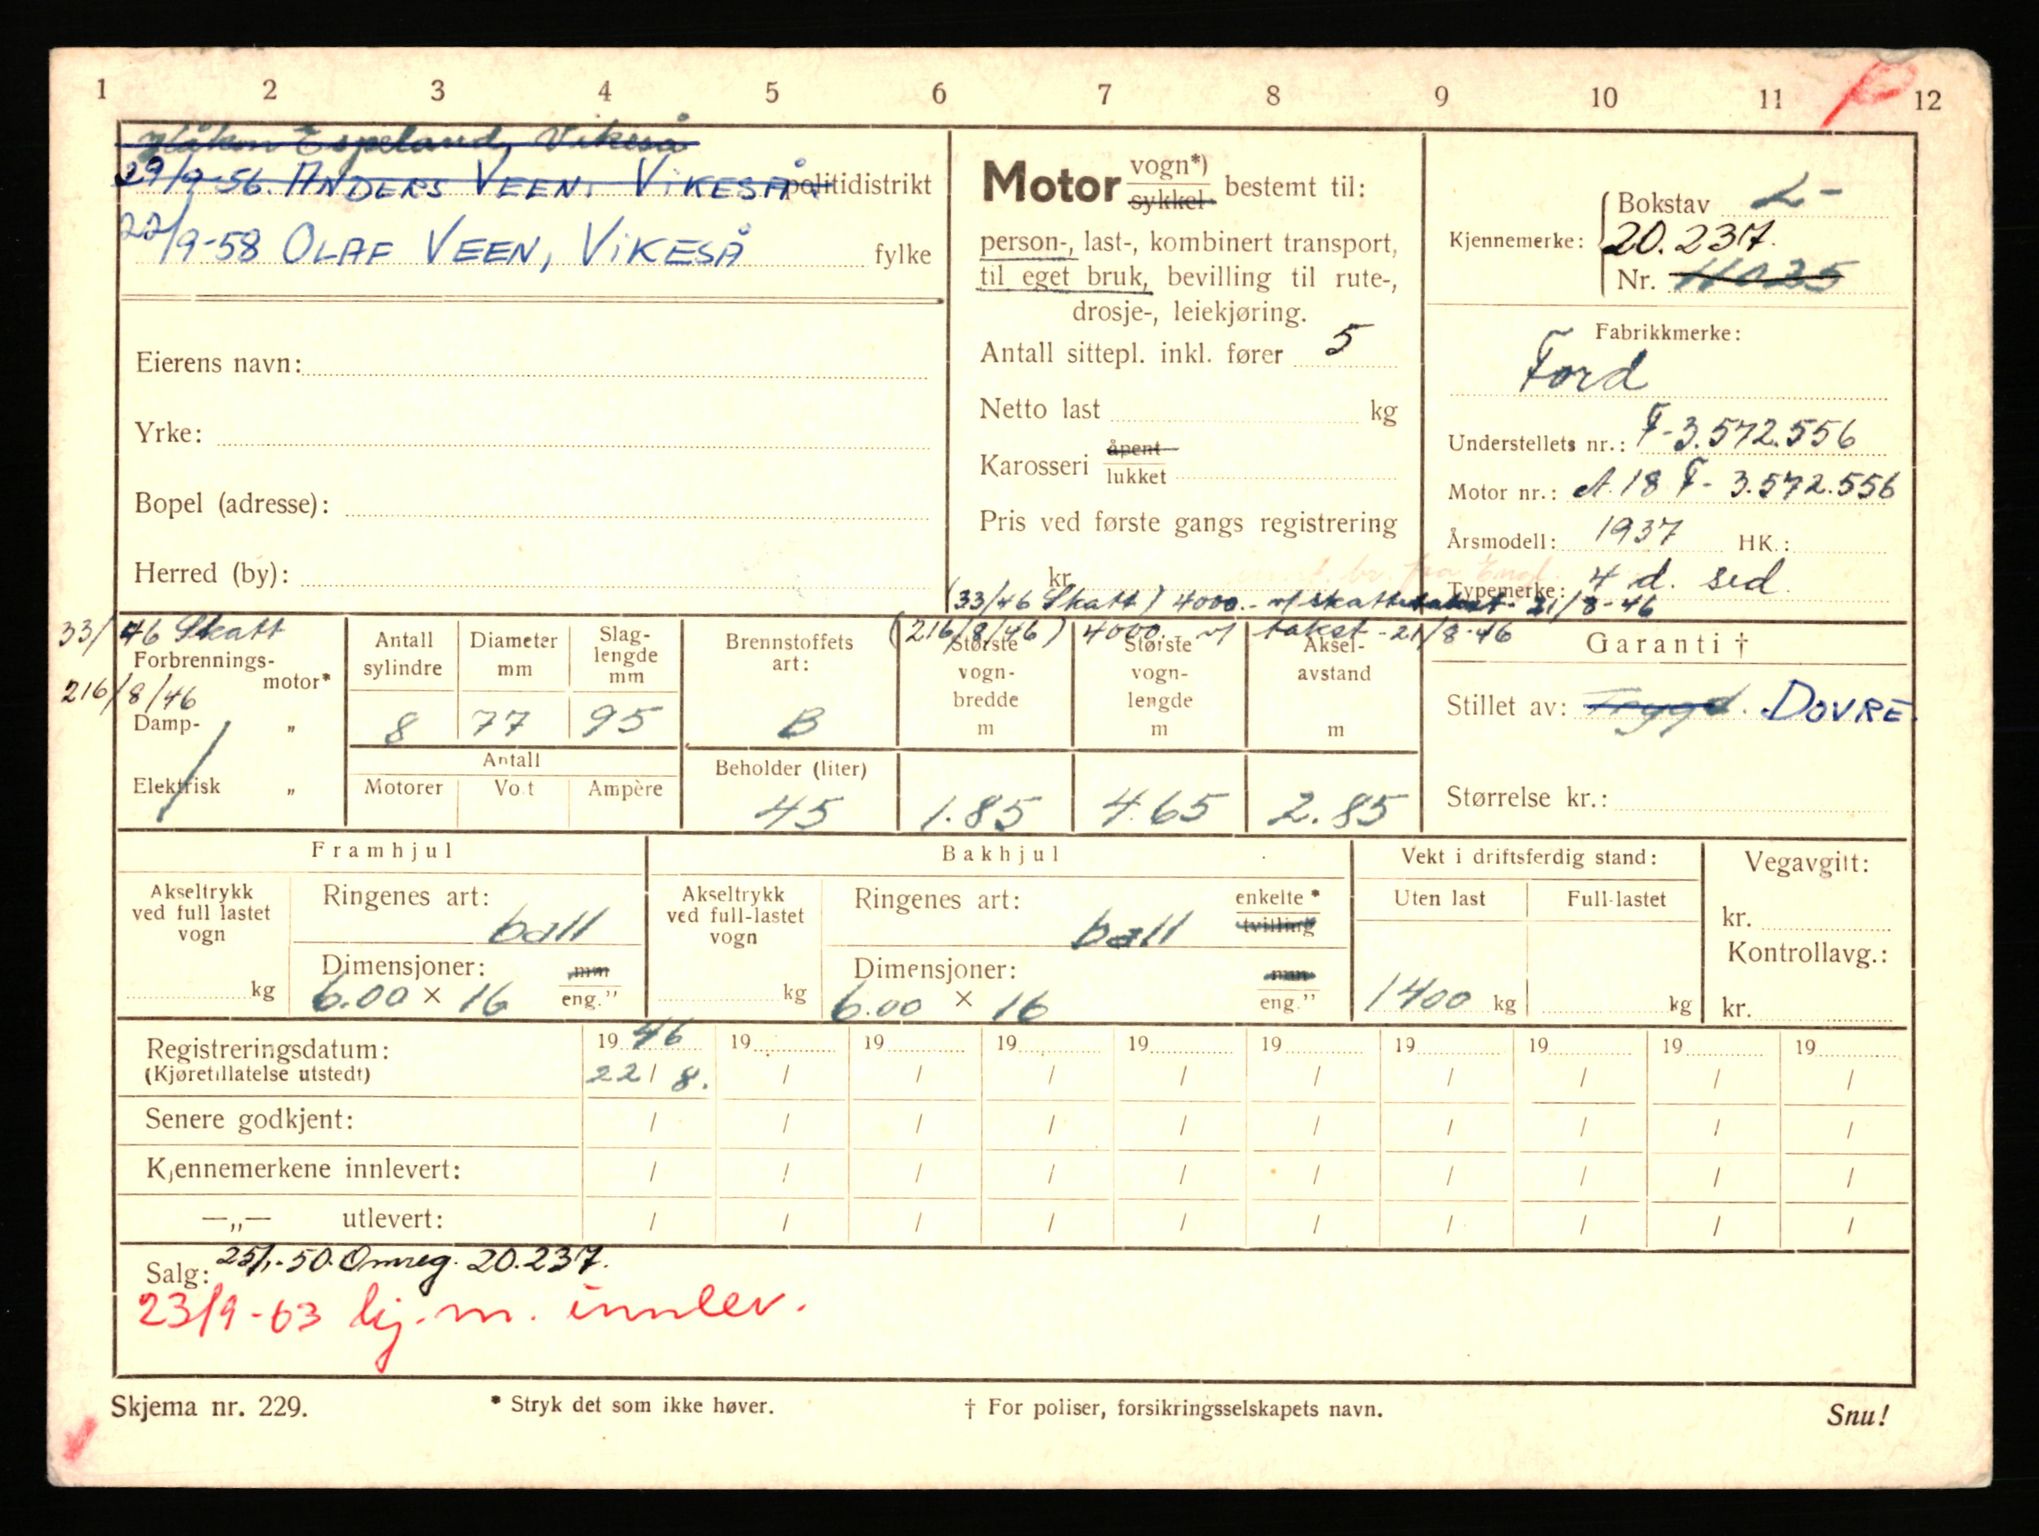 1 2 3 4 5 6 7 8 9 10 11 12
Håkon Espeland, Vikeså
29/9-56. ANDERS VEEN, VIKESÅ. politidistrikt
22/9-58 OLAF VEEN, VIKESÅ fylke
Eierens navn:
Yrke:
Bopel (adresse):
Herred (by):
Motor vogn*)
sykkel bestemt til:
person-, last-, kombinert transport,
til eget bruk, bevilling til rute-,
drosje-, leiekjøring.
Antall sittepl. inkl. fører 5
Netto last kg
Karosseri åpent
lukket
Pris ved første gangs registrering
kr
(33/46 Skatt) 4000.- v/ skattetakst 21/8-46
(216/8/46) 4000.- v/ takst - 21/8-46
Bokstav L-
Kjennemerke: 20.237.
Nr. 11035
Fabrikkmerke:
Ford
Understellets nr.: F-3.572.556
Motor nr.: A 18 F- 3.572.556
Årsmodell: 1937 HK.:
Typemerke: 4 d. sed.
33/46 Skatt
Forbrennings-
motor*
216/8/46
Damp- „
Elektrisk „
Antall
sylindre
8
Diameter
mm
77
Slag-
lengde
mm
95
Antall
Motorer Volt Ampère
Brennstoffets
art:
B
Beholder (liter)
45
Største
vogn-
bredde
m
1.85
Største
vogn-
lengde
m
4.65
Aksel-
avstand
m
2.85
Garanti †
Stillet av: Trygd. DOVRE.
Størrelse kr.:
Framhjul
Akseltrykk
ved full lastet
vogn
kg
Ringenes art:
ball
Dimensjoner: mm
6.00 × 16 eng.”
Bakhjul
Akseltrykk
ved full-lastet
vogn
kg
Ringenes art: enkelte *
ball tvilling
Dimensjoner: mm
6.00 × 16 eng.”
Vekt i driftsferdig stand:
Uten last Full-lastet
1400 kg kg
Vegavgift:
kr.
Kontrollavg.:
kr.
Registreringsdatum: 19 46 19 19 19 19 19 19 19 19 19
(Kjøretillatelse utstedt) 22 / 8. / / / / / / / / /
Senere godkjent: / / / / / / / / / /
Kjennemerkene innlevert: / / / / / / / / / /
—„— utlevert: / / / / / / / / / /
Salg: 25/1-50. Omreg. 20.237.
23/9-63 kj.m. innlev.
Skjema nr. 229. * Stryk det som ikke høver. † For poliser, forsikringsselskapets navn. Snu!